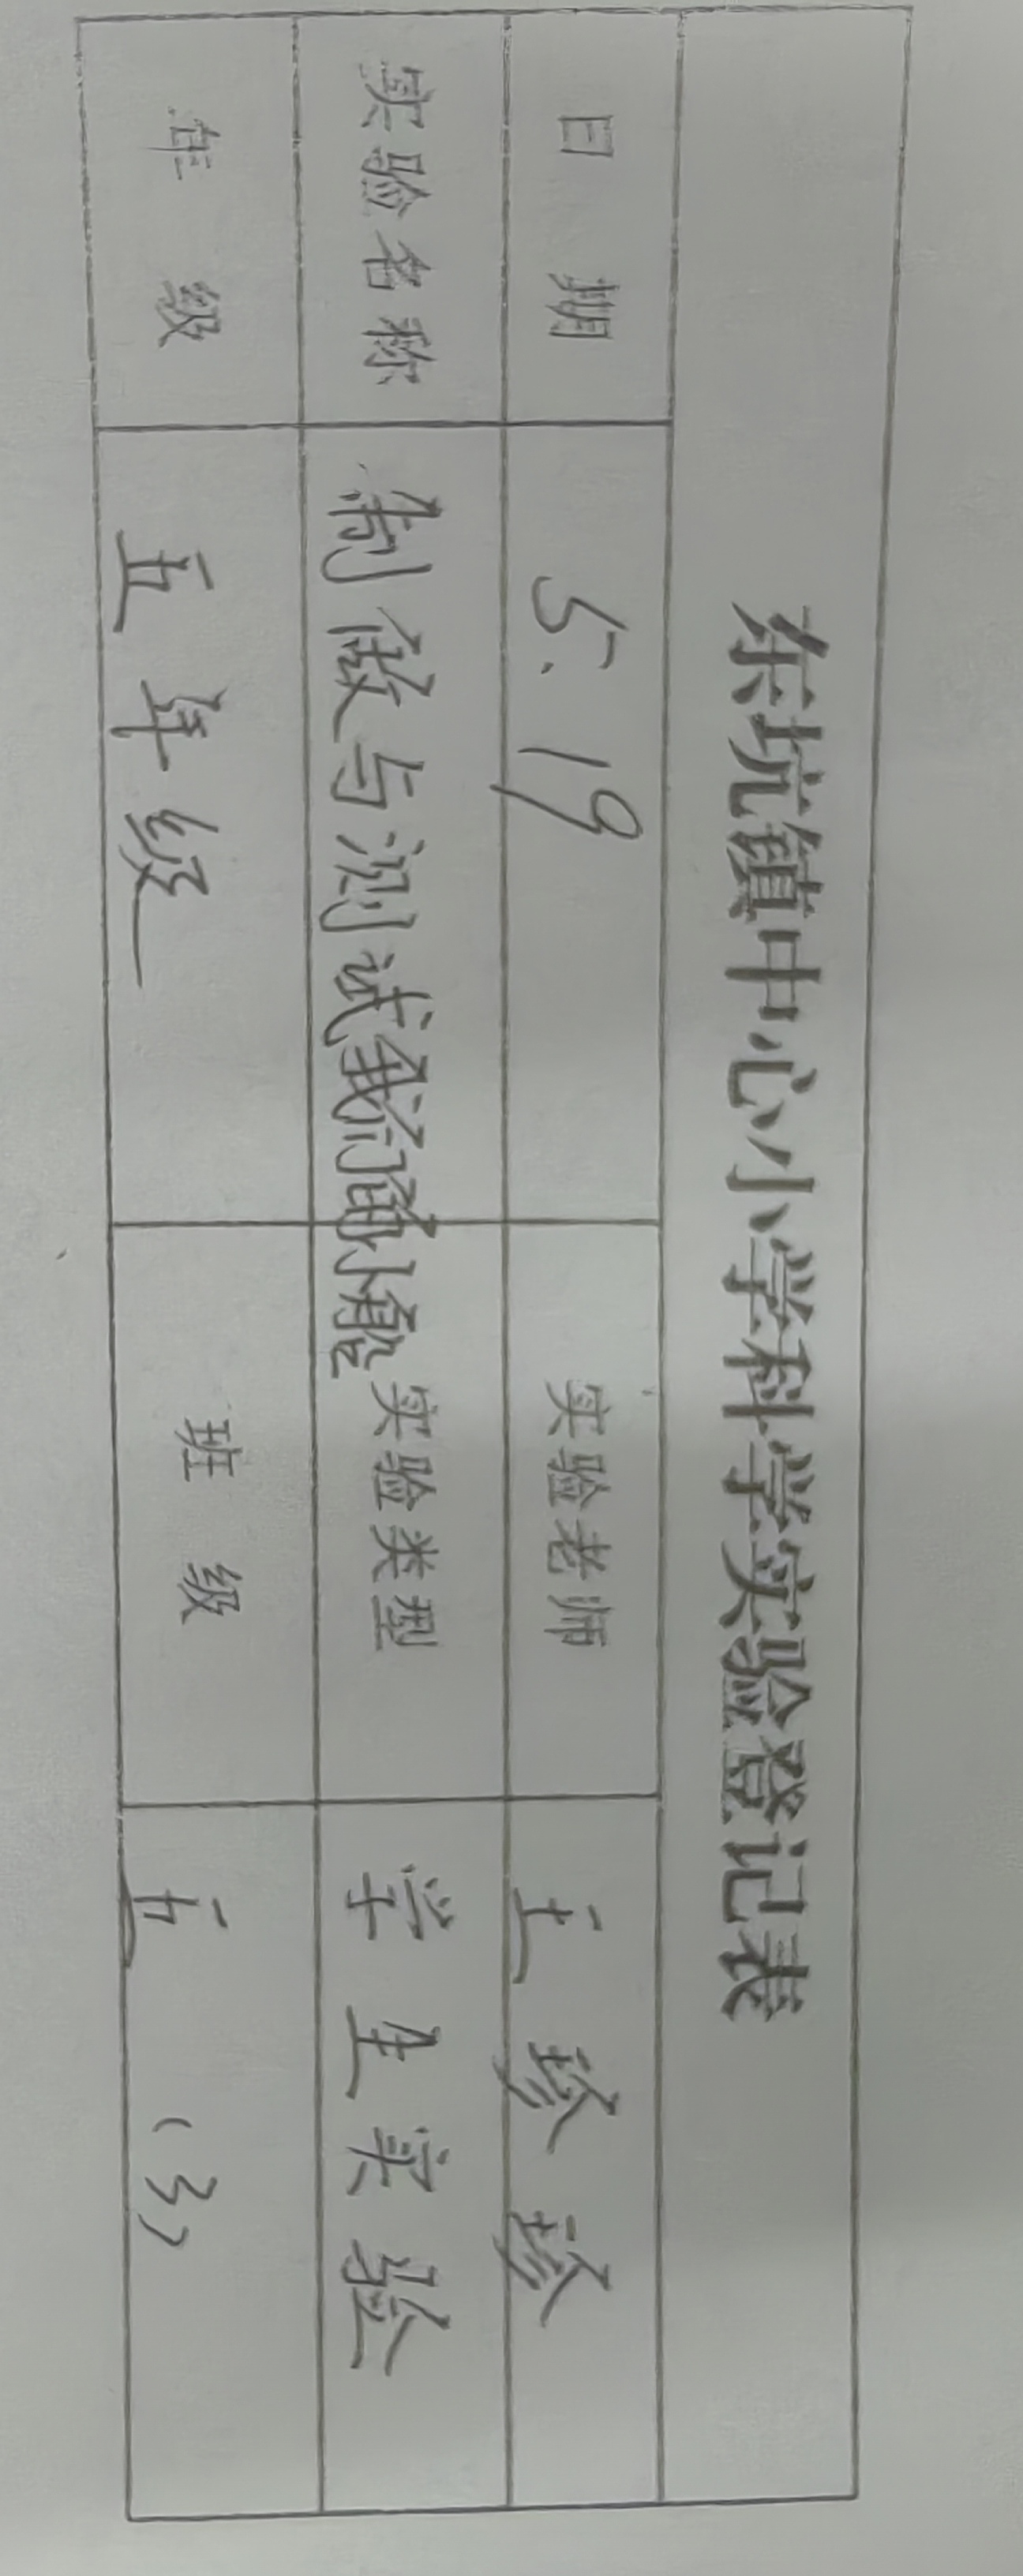 东坑镇中心小学科学实验登记表
日期 5.19 实验老师 王珍珍
实验名称 制做与测试我们的小船 实验类型 学生实验
年级 五年级 班级 五（3）